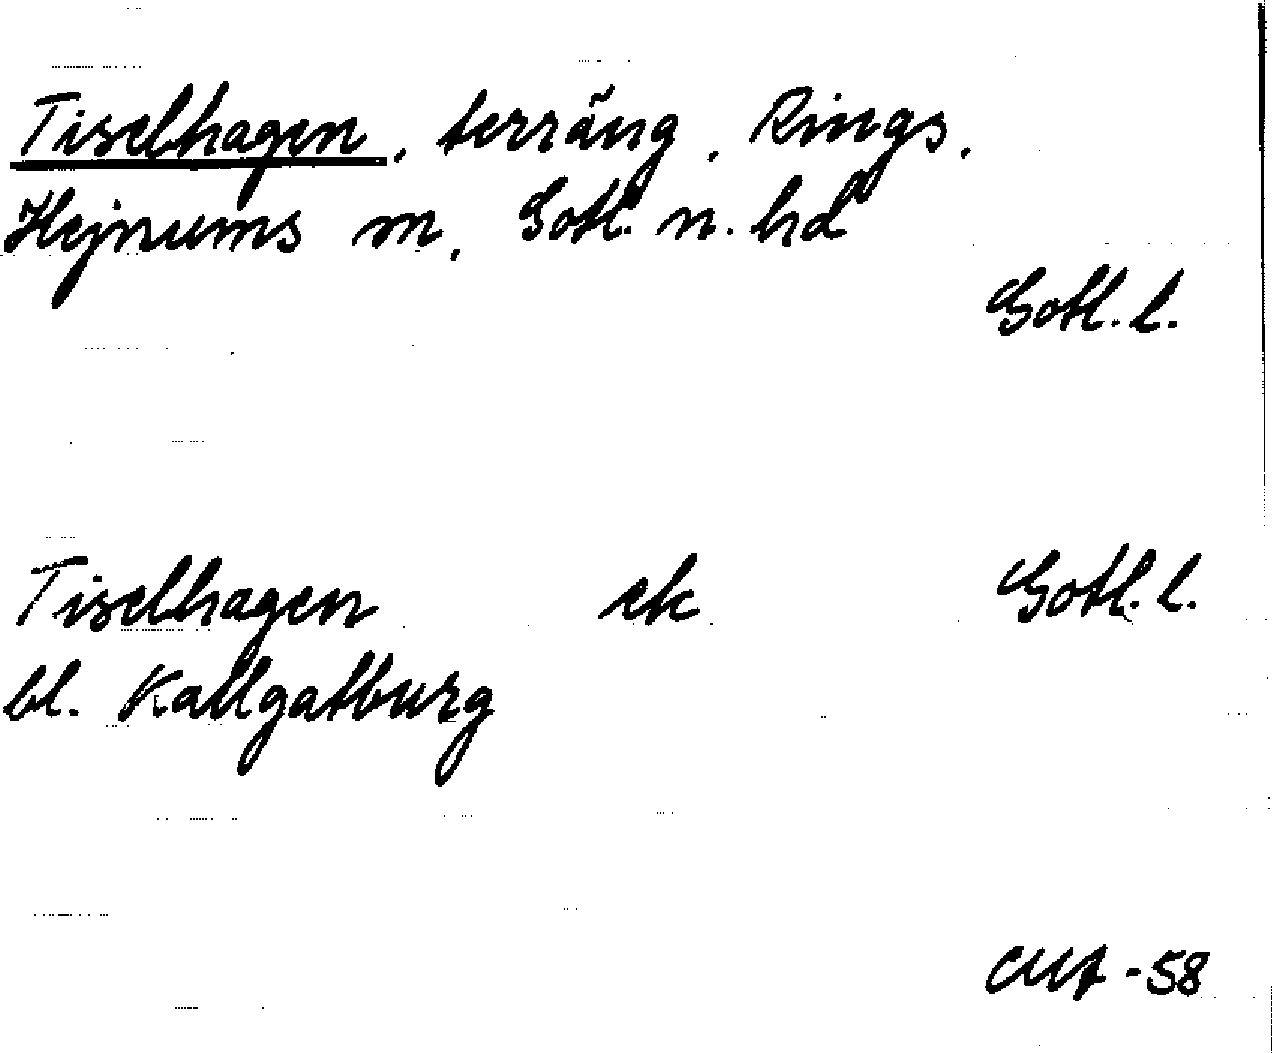 Tiselhagen, terräng, Rings,
Hejnums sn, Gotl. n. hd
Gotl. l.
Tiselhagen ek Gotl. l.
bl. Kallgatburg
-58